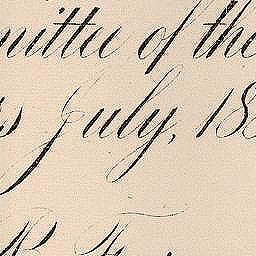 mittee of the
s July, 18